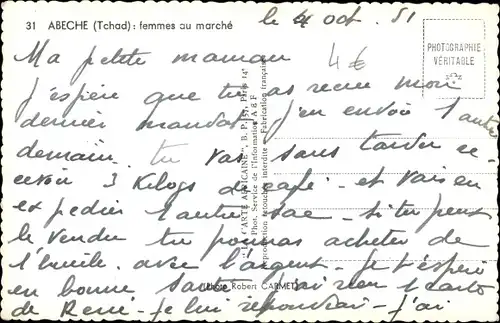 31 ABECHE (Tchad) : femmes au marché
le 4 oct. 51
PHOTOGRAPHIE
VÉRITABLE
4€
Ma petite maman
J'espère que tu as recu mon
dernier mandat j'en envoi 1 autre
demain. tu vas sans tarder re-
cevoir 3 Kilogs de café - et vais en
expedier 1 autre sac - si tu peux
le vendre tu pourras acheter de
l'huile. avec l'argent - Je t'espère
en bonne santé J'ai recu 1 carte
de René - je lui repondrai - j'ai
"LA CARTE AFRICAINE", B. P. 57, Paris 14e
Phot. Service de l'Information A E F
Reproduction retouchée interdite - Fabrication française
Photo Robert CARMET